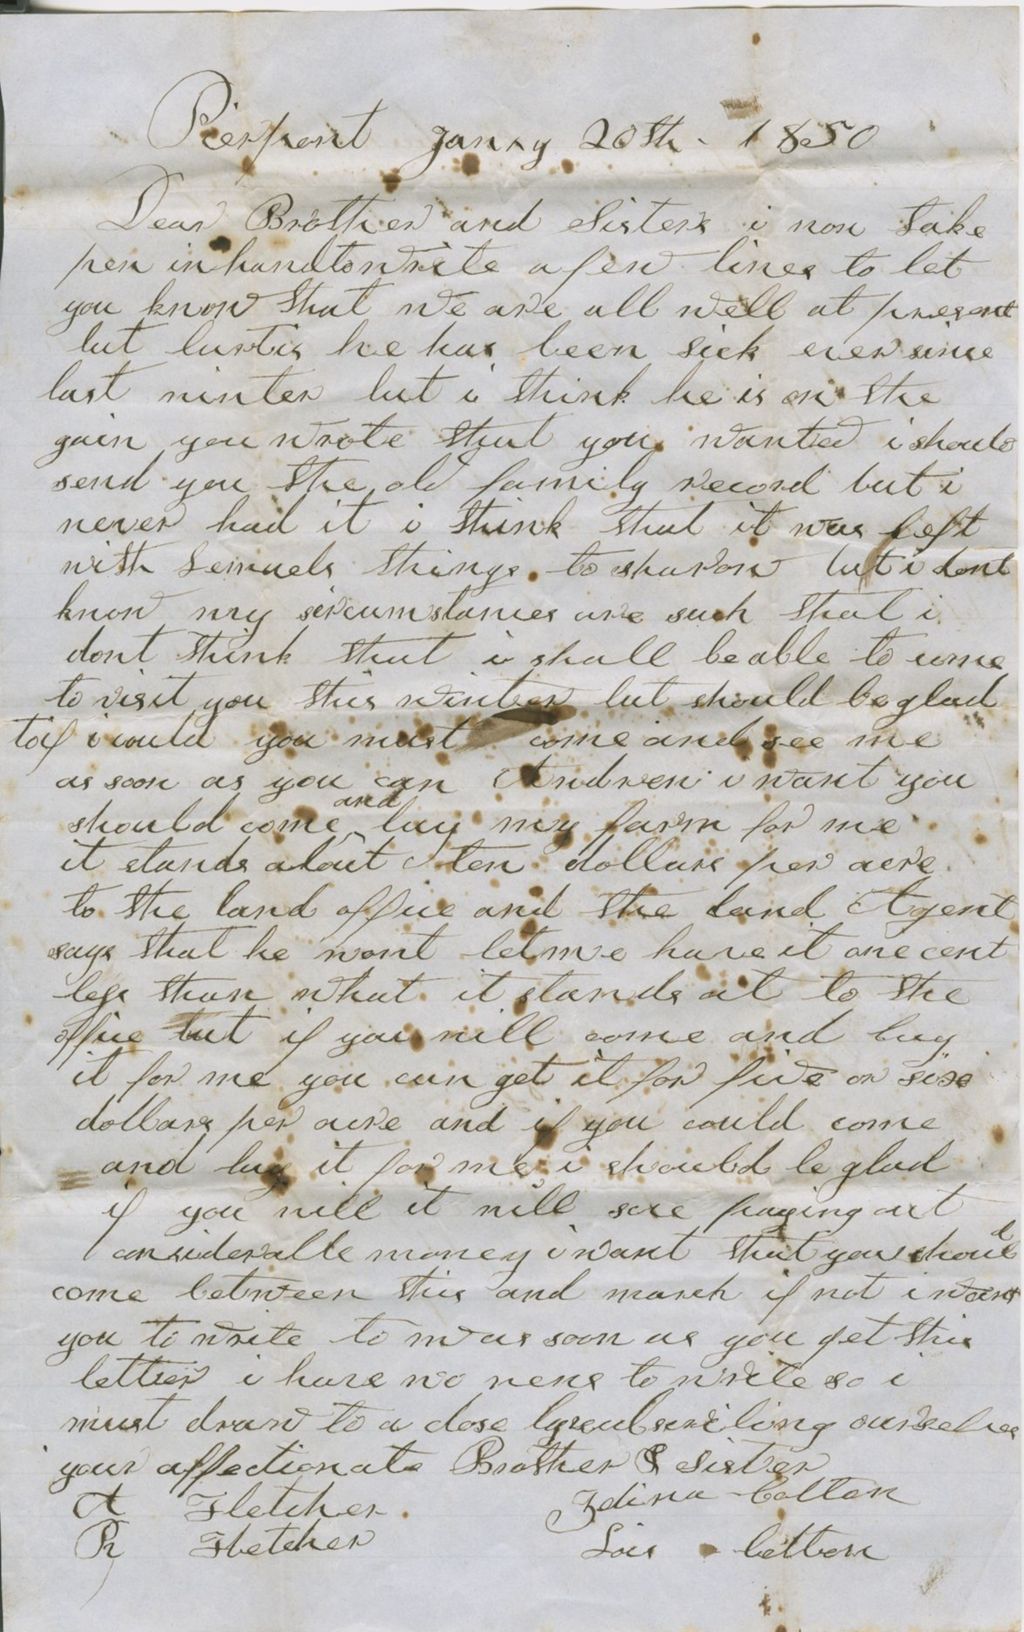 Pierpont Janry 20th. 1850
Dear Brother and Sisters i now take
pen in hand to write a few lines to let
you know that we are all well at present
but Curtis he has been sick ever since
last winter but i think he is on the
gain you wrote that you wanted i should
send you the old family record but i
never had it i think that it was left
with Lemuels things to sharon but i dont
know my sircumstances are such that i
dont think that i shall be able to come
to visit you this winter but should be glad
to if i could you must come and see me
as soon as you can Andrew i want you
should come and buy my farm for me
it stands about ten dollars per acre
to the land office and the land Agent
says that he wont let me have it one cent
less than what it stands at to the
office but if you will come and buy
it for me you can get it for five or six
dollars per acre and if you could come
and buy it for me i should be glad
if you will it will save paying out
considerable money i want that you should
come between this and march if not i want
you to write to me as soon as you get this
letter i have no news to write so i
must draw to a close by subscribing ourselves
your affectionate Brother & Sister
A Fletcher. Zdina Colton
R Fletcher Lois Colton